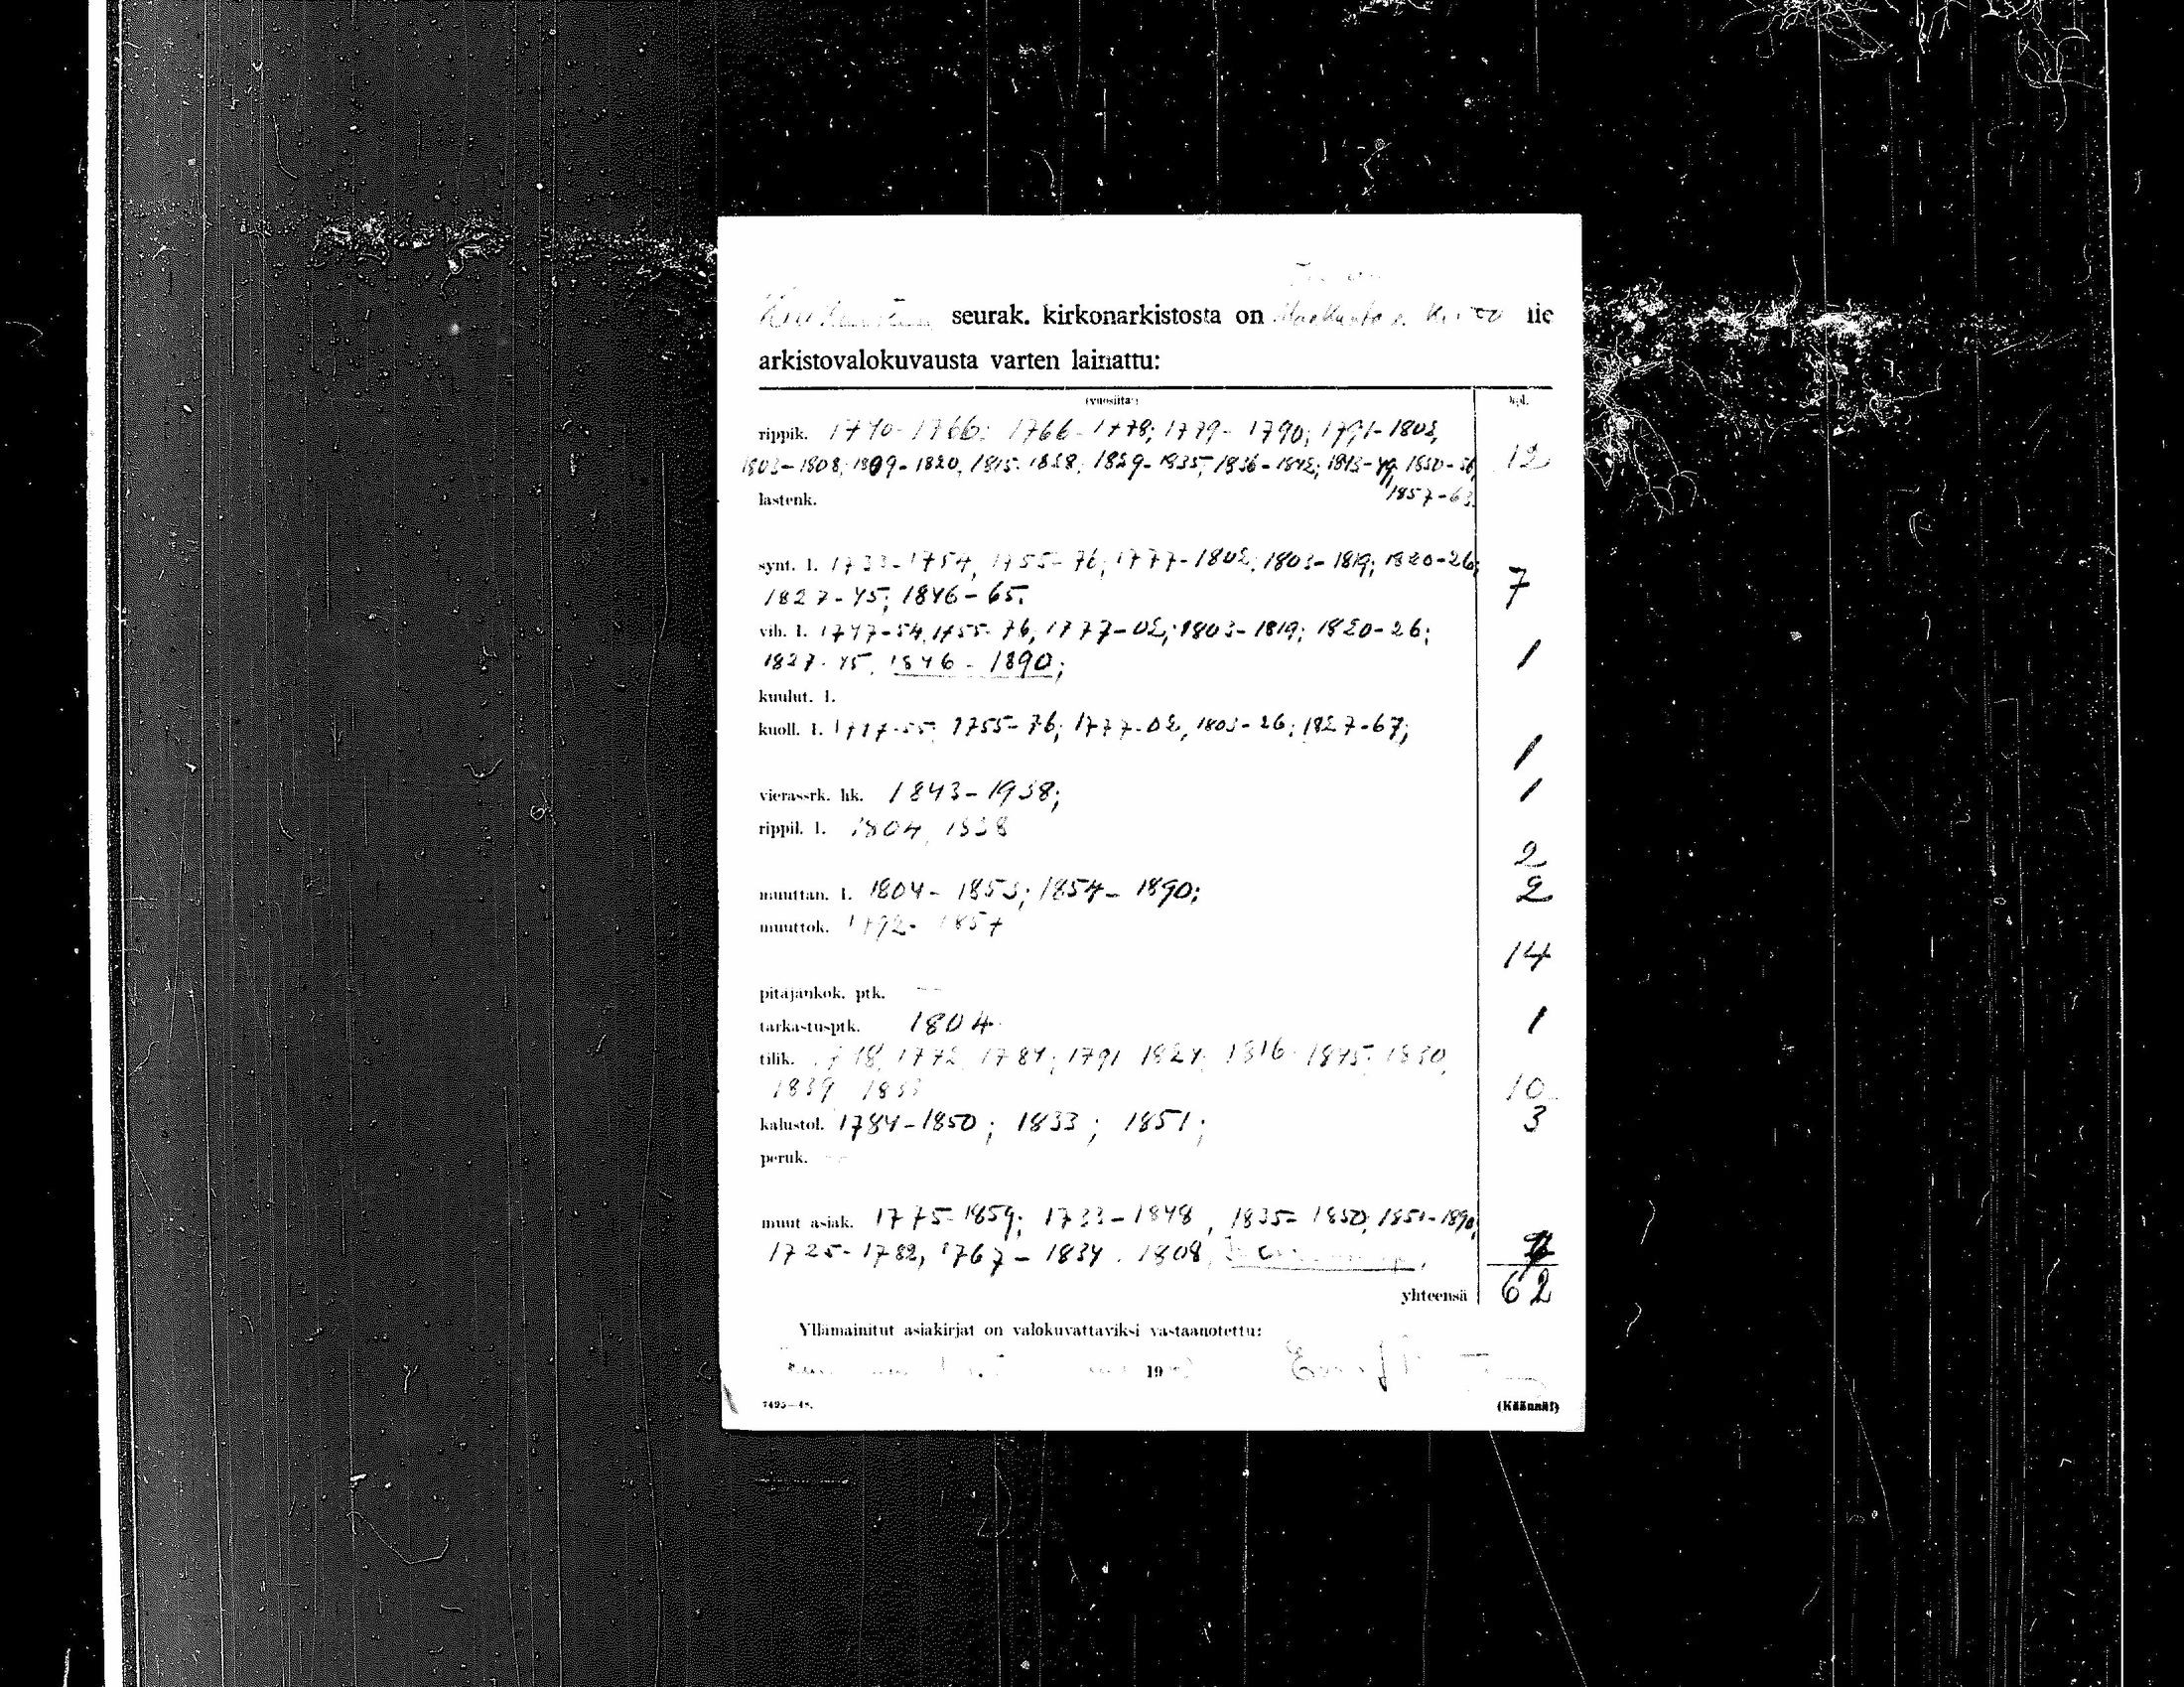 seurak. kirkonarkistosta on lle
arkistovalokuvausta varten lainattu:
(vuosilta:) kpl.
rippik. 1740-1766; 1766-1778; 1779-1790; 1791-1802,
1803-1808; 1809-1820, 1815-1828; 1829-1835; 1836-1842; 1843-49; 1850-56, 12
1857-63.
lastenk.
synt. l. 1733-1754, 1755-76; 1777-1802; 1803-1819; 1820-26;
1827-45; 1846-65. 7
vih. l. 1747-54, 1755-76, 1777-02; 1803-1819; 1820-26;
1827-45, 1846-1890; 1
kuulut. l.
kuoll. l. 1717-55; 1755-76; 1777-02, 1803-26; 1827-67;
1
vierassrk. hk. 1843-1938; 1
rippil. l. 1804, 1838
2
muuttan. l. 1804-1853; 1854-1890; 2
muuttok. 1792-1857
14
pitäjänkok. ptk. —
tarkastusptk. 1804 1
tilik. 1772 1784; 1791 1824; 1816-1845; 1830,
1839 1853 10
kalustol. 1784-1850; 1833; 1851; 3
peruk. —
muut asiak. 1775-1859; 1733-1848, 1835-1850; 1851-1890;
1725-1782, 1767-1834. 1808,
yhteensä 62
Yllämainitut asiakirjat on valokuvattaviksi vastaanotettu:
19
7495—48. (Käännä!)